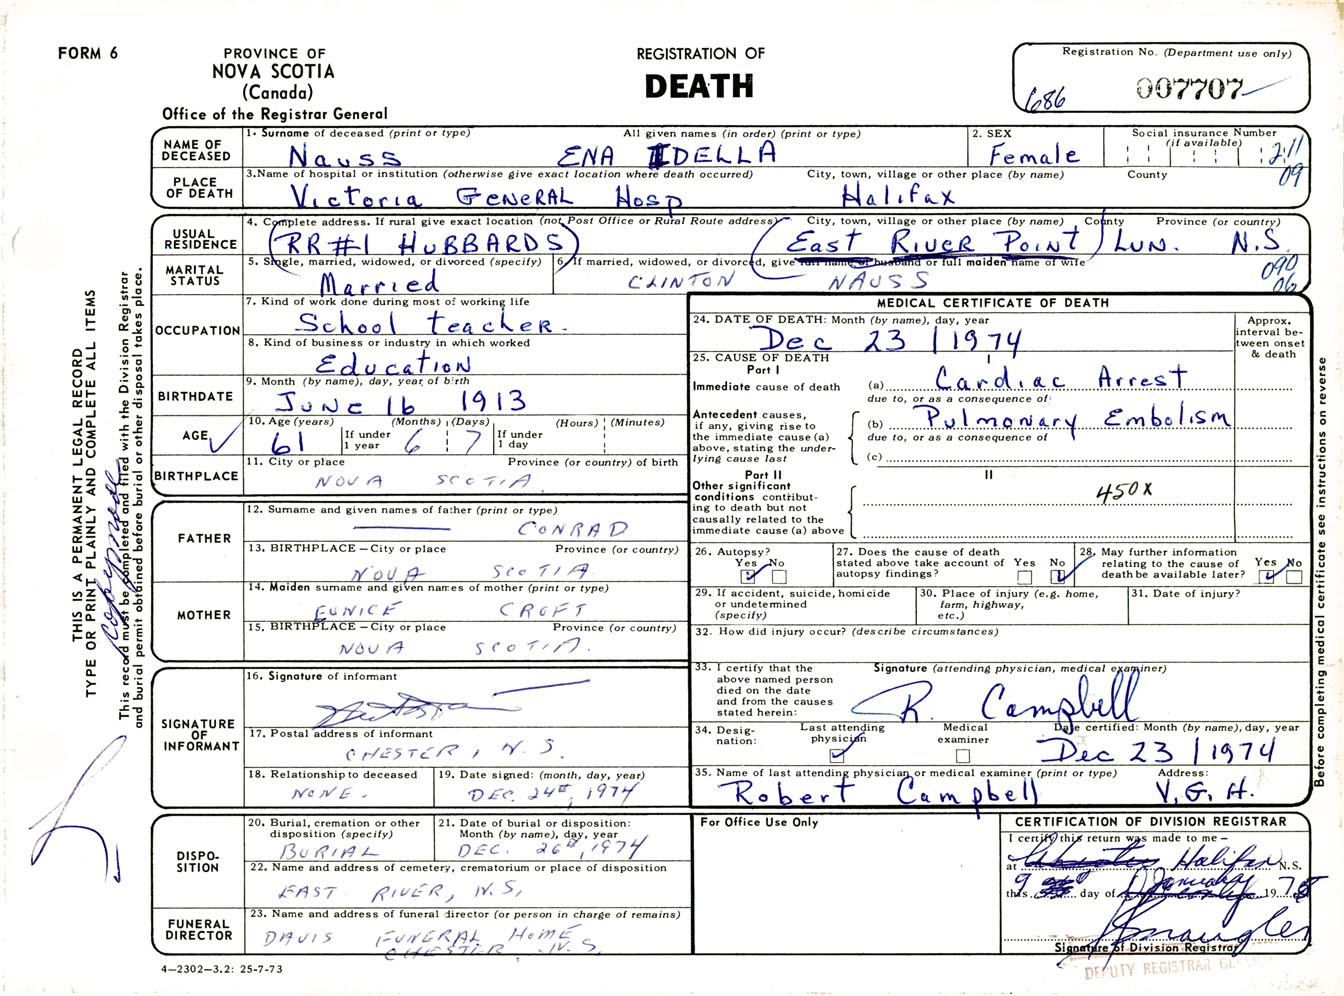 FORM 6
PROVINCE OF
NOVA SCOTIA
(Canada)
Office of the Registrar General
REGISTRATION OF
DEATH
Registration No. (Department use only)
686 007707
NAME OF DECEASED
1. Surname of deceased (print or type) All given names (in order) (print or type)
Nauss ENA IDELLA
2. SEX
Female
Social insurance Number
(if available)
211
09
PLACE OF DEATH
3. Name of hospital or institution (otherwise give exact location where death occurred) City, town, village or other place (by name) County
Victoria GENERAL Hosp Halifax
USUAL RESIDENCE
4. Complete address. If rural give exact location (not Post Office or Rural Route address) City, town, village or other place (by name) County Province (or country)
(RR#1 HUBBARDS) (East RIVER POINT) LUN. N.S.
MARITAL STATUS
5. Single, married, widowed, or divorced (specify)
Married
6. If married, widowed, or divorced, give full name of husband or full maiden name of wife
CLINTON NAUSS
090
06
OCCUPATION
7. Kind of work done during most of working life
School teacher.
8. Kind of business or industry in which worked
Education
BIRTHDATE
9. Month (by name), day, year of birth
JUNE 16 1913
AGE
10. Age (years) (Months) (Days) (Hours) (Minutes)
61 If under 1 year 6 7 If under 1 day
BIRTHPLACE
11. City or place Province (or country) of birth
NOVA SCOTIA
FATHER
12. Surname and given names of father (print or type)
CONRAD
13. BIRTHPLACE – City or place Province (or country)
NOVA SCOTIA
MOTHER
14. Maiden surname and given names of mother (print or type)
EUNICE CROFT
15. BIRTHPLACE – City or place Province (or country)
NOVA SCOTIA.
SIGNATURE OF INFORMANT
16. Signature of informant
17. Postal address of informant
CHESTER, N.S.
18. Relationship to deceased
NONE.
19. Date signed: (month, day, year)
DEC. 24th, 1974
DISPO-SITION
20. Burial, cremation or other disposition (specify)
BURIAL
21. Date of burial or disposition: Month (by name), day, year
DEC. 26th, 1974
22. Name and address of cemetery, crematorium or place of disposition
EAST RIVER, N.S.
FUNERAL DIRECTOR
23. Name and address of funeral director (or person in charge of remains)
DAVIS FUNERAL HOME
CHESTER, N.S.
4–2302–3.2: 25-7-73
MEDICAL CERTIFICATE OF DEATH
24. DATE OF DEATH: Month (by name), day, year
Dec 23 / 1974
Approx. interval be-tween onset & death
25. CAUSE OF DEATH
Part I I
Immediate cause of death (a) Cardiac Arrest
due to, or as a consequence of
Antecedent causes, if any, giving rise to the immediate cause (a) above, stating the under-lying cause last
(b) Pulmonary Embolism
due to, or as a consequence of
(c)
Part II II
Other significant conditions contribut-ing to death but not causally related to the immediate cause (a) above
450X
26. Autopsy? Yes No
27. Does the cause of death stated above take account of autopsy findings? Yes No
28. May further information relating to the cause of death be available later? Yes No
29. If accident, suicide, homicide or undetermined (specify)
30. Place of injury (e.g. home, farm, highway, etc.)
31. Date of injury?
32. How did injury occur? (describe circumstances)
33. I certify that the above named person died on the date and from the causes stated herein:
Signature (attending physician, medical examiner)
R. Campbell
34. Desig-nation: Last attending physician Medical examiner
Date certified: Month (by name), day, year
Dec 23 / 1974
35. Name of last attending physician or medical examiner (print or type) Address:
Robert Campbell V.G.H.
For Office Use Only
CERTIFICATION OF DIVISION REGISTRAR
I certify this return was made to me –
at Halifax N.S.
this 9 day of January 1975
Signature of Division Registrar
DEPUTY REGISTRAR
THIS IS A PERMANENT LEGAL RECORD
TYPE OR PRINT PLAINLY AND COMPLETE ALL ITEMS
copy made
This record must be completed and filed with the Division Registrar
and burial permit obtained before burial or other disposal takes place.
Before completing medical certificate see instructions on reverse